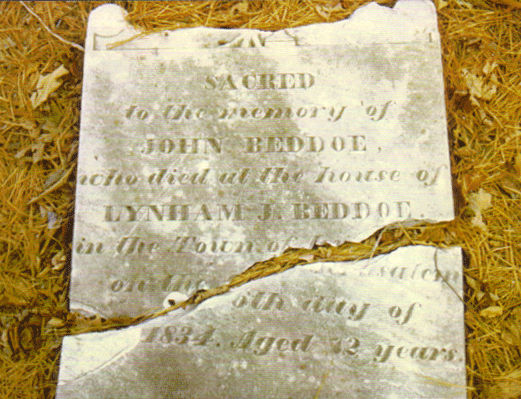 SACRED
to the memory of
JOHN BEDDOE,
who died at the house of
LYNHAM J. BEDDOE.
in the Town of
on the day of
1834. Aged 72 years.